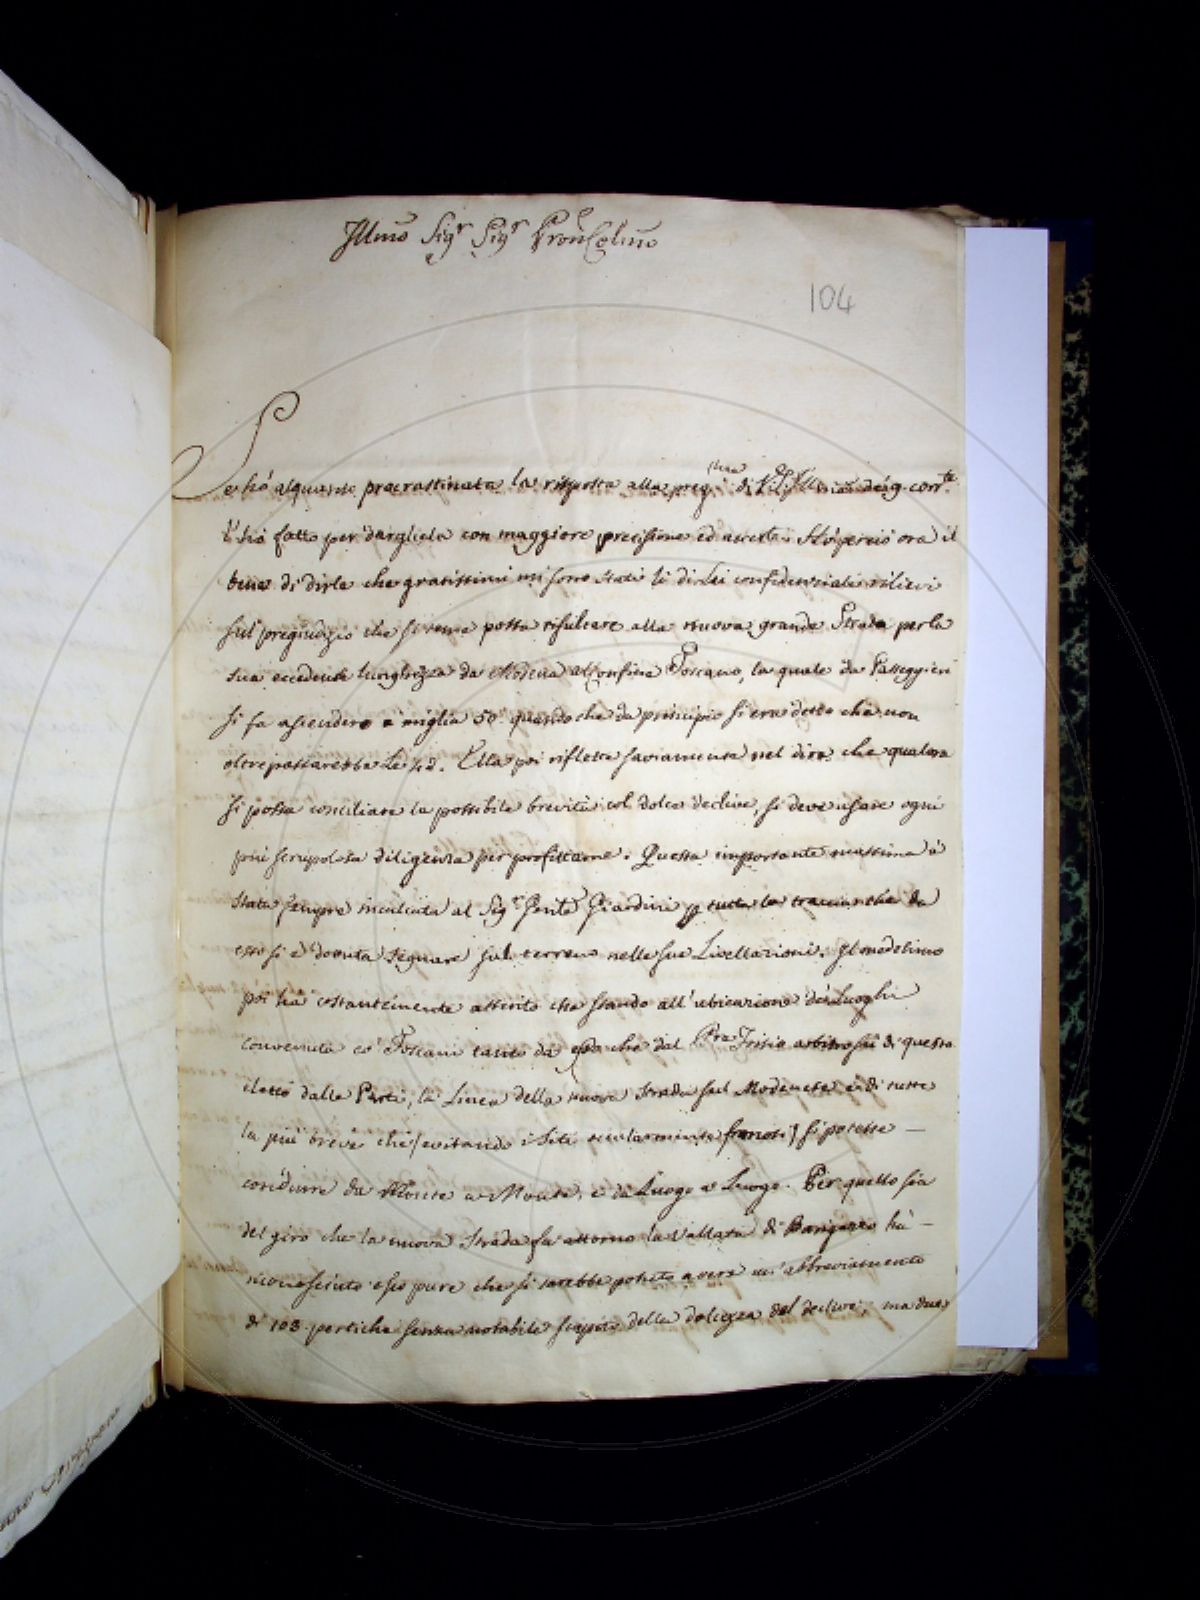 Illmo Sigr Sigr Pron Colmo
104
Se hó alquanto procrastinata la risposta alla pregma di V.S. Illma dei 9. corrte
l'hó fatto per dargliela con maggiore precisione ed accerto. Hò perciò ora il
bene di dirle che gratissimi mi sono stati li di Lei confidenziali rilievi
sul pregiudizio che si teme possa risultare alla nuova grande Strada per la
sua eccedente lunghezza da Modena al Confine Toscano, la quale da Passeggieri
si fa ascendere a miglia 50 quando che da principio si era detto che non
oltrepassarebbe le 42. Ella poi riflette saviamente nel dire che qualora
si possa conciliare la possibile brevità col dolce declive, si deve usare ogni
più scrupolosa diligenza per profittarne. Questa importante massima è
stata sempre inculcata al Sigr Giardini p tutta la traccia che da
esso si è dovuta segnare sul terreno nelle sue Livellazioni. Il medesimo
poi ha costantemente asserito che stando all'ubicazione dei Luoghi
convenuta co' Toscani tanto da esso che dal Pre Frisio arbitro di questa
eletto dalle Parti, la Linea della nuova Strada sul Modenese è di tutte
la più breve che (evitando i Siti) si potesse —
condurre da Monte a Monte, e da Luogo a Luogo. Per quello sia
del giro che la nuova Strada fa attorno la Vallata di Barigazzo hà —
riconosciuto esso pure che si sarebbe potuto avere un abbreviamento
di 108 pertiche senza notabile scapito della dolcezza del declive, ma due